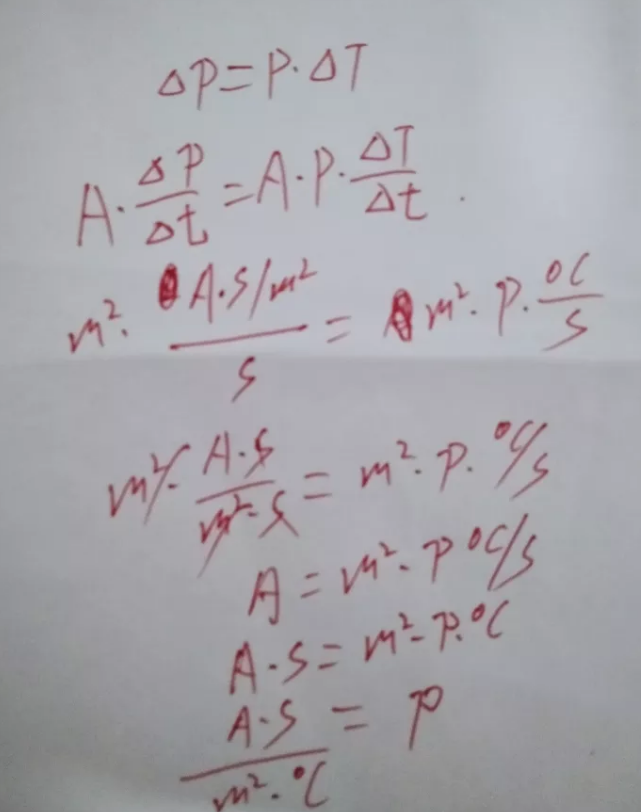 ΔP=P·ΔT
A·ΔP/Δt=A·P·ΔT/Δt.
m²·(A·S/m²)/S=m²·P·°C/S
m²·(A·S)/(m²·S)=m²·P·°C/S
A=m²·P°C/S
A·S=m²·P·°C
(A·S)/(m²·°C)=P